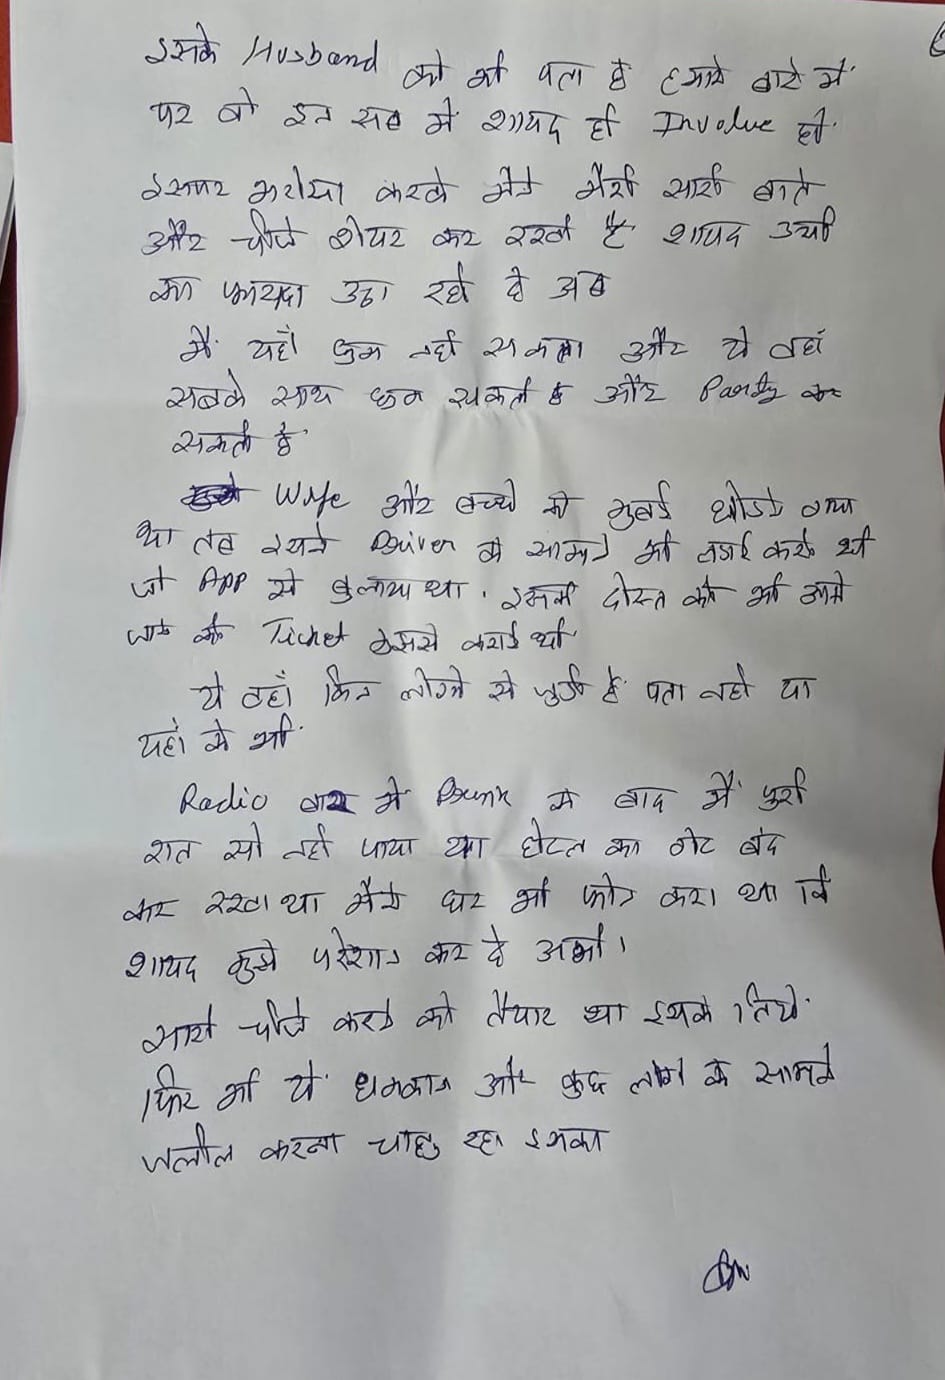 इसके Husband को भी पता है हमारे बारे में
पर वो इन सब में शायद ही Involve हो
इसपर भरोसा करके मैने मेरी सारी बाते
और चीजे शेयर कर रखी है शायद उसी
का फायदा उठा रहे है अब
मैं यहाँ घुम नही सकता और ये वहां
सबके साथ घुम सकती है और Party कर
सकती है
Wife और बच्चो को मुंबई छोडने गया
था तब इसने Driver के सामने भी लडाई करी थी
जो App से बुलाया था। इसकी दोस्त की भी आने
जाने की Ticket इससे कराई थी
ये वहाँ किन लोगो से जुडी है पता नही या
यहां के भी
Radio बार में Drunk के बाद मैं पुरी
रात सो नही पाया था होटल का गेट बंद
कर रखा था मैने घर भी फोन करा था कि
शायद मुझे परेशान कर दे अभी।
सारी चीजे करने को तैयार था इसके लिये
फिर भी ये धमकाना और कुछ लोगो के सामने
जलील करना चाह रहा इसका